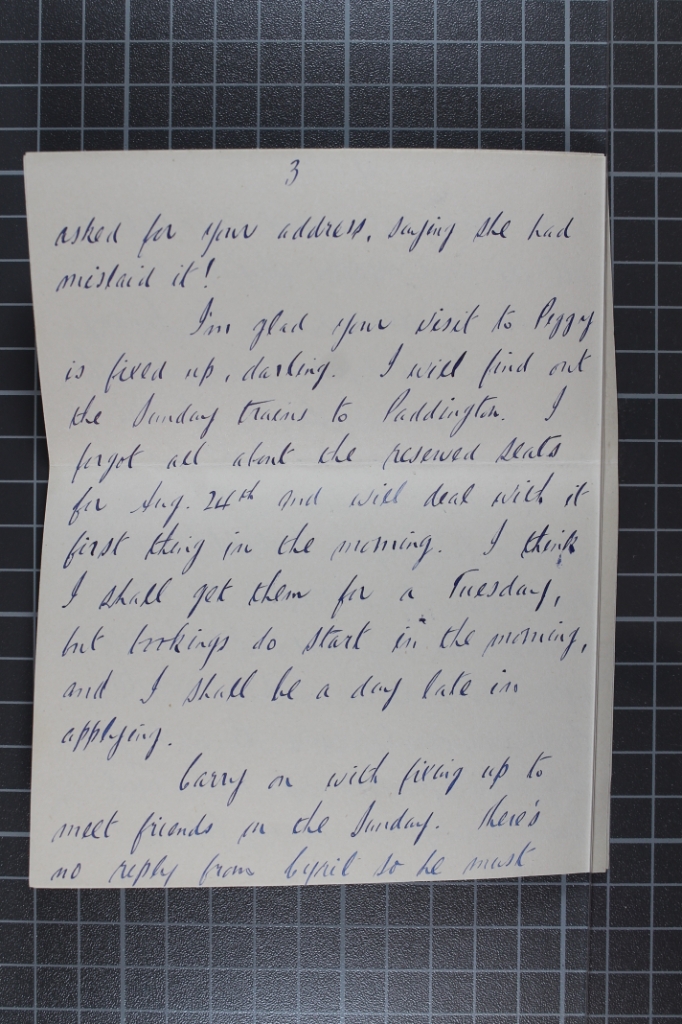 3
asked for your address, saying she had
mislaid it!
I'm glad your visit to Peggy
is fixed up, darling. I will find out
the Sunday trains to Paddington. I
forgot all about the reserved seats
for Aug. 24th and will deal with it
first thing in the morning. I think
I shall get them for a Tuesday,
but bookings do start in the morning,
and I shall be a day late in
applying.
Carry on with fixing up to
meet friends on the Sunday. There's
no reply from Cyril so he must